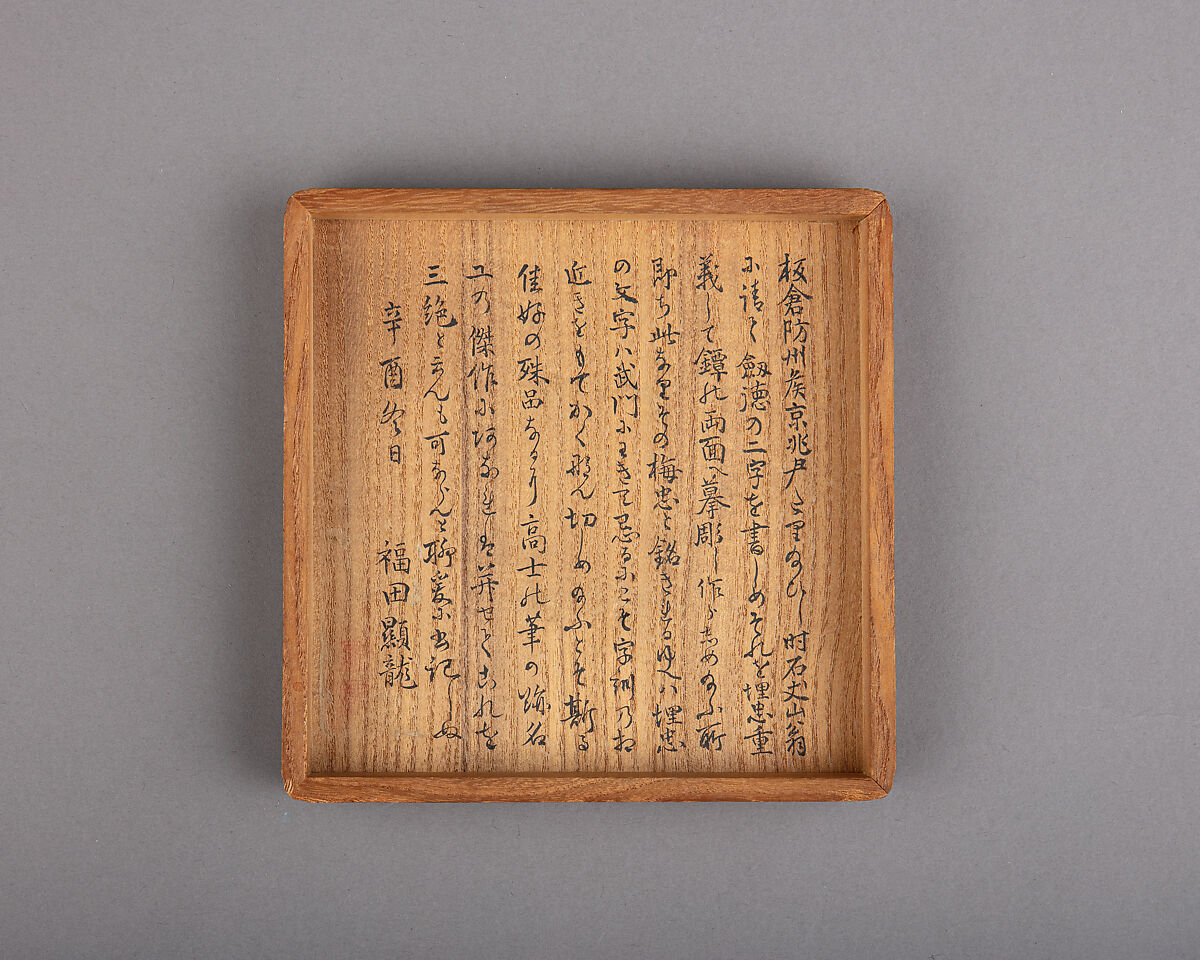 板倉防州侯京兆尹たりのひし時石丈山翁
に請て劔徳の二字を書しめそれを埋忠重
義して鐔の両面へ摹彫し作らしめふ所
即ち此なりその梅忠と銘きれるゆへハ埋忠
の文字ハ武門にわきて忌るにこそ字訓乃相
近きをもてかく形ん切しめふとそ斯る
佳好の殊品なるに高士の筆の跡名
工の傑作に並せてこれを
三絶と云んも可ならんと聊爰に書記しぬ
辛酉冬日 福田顯龍